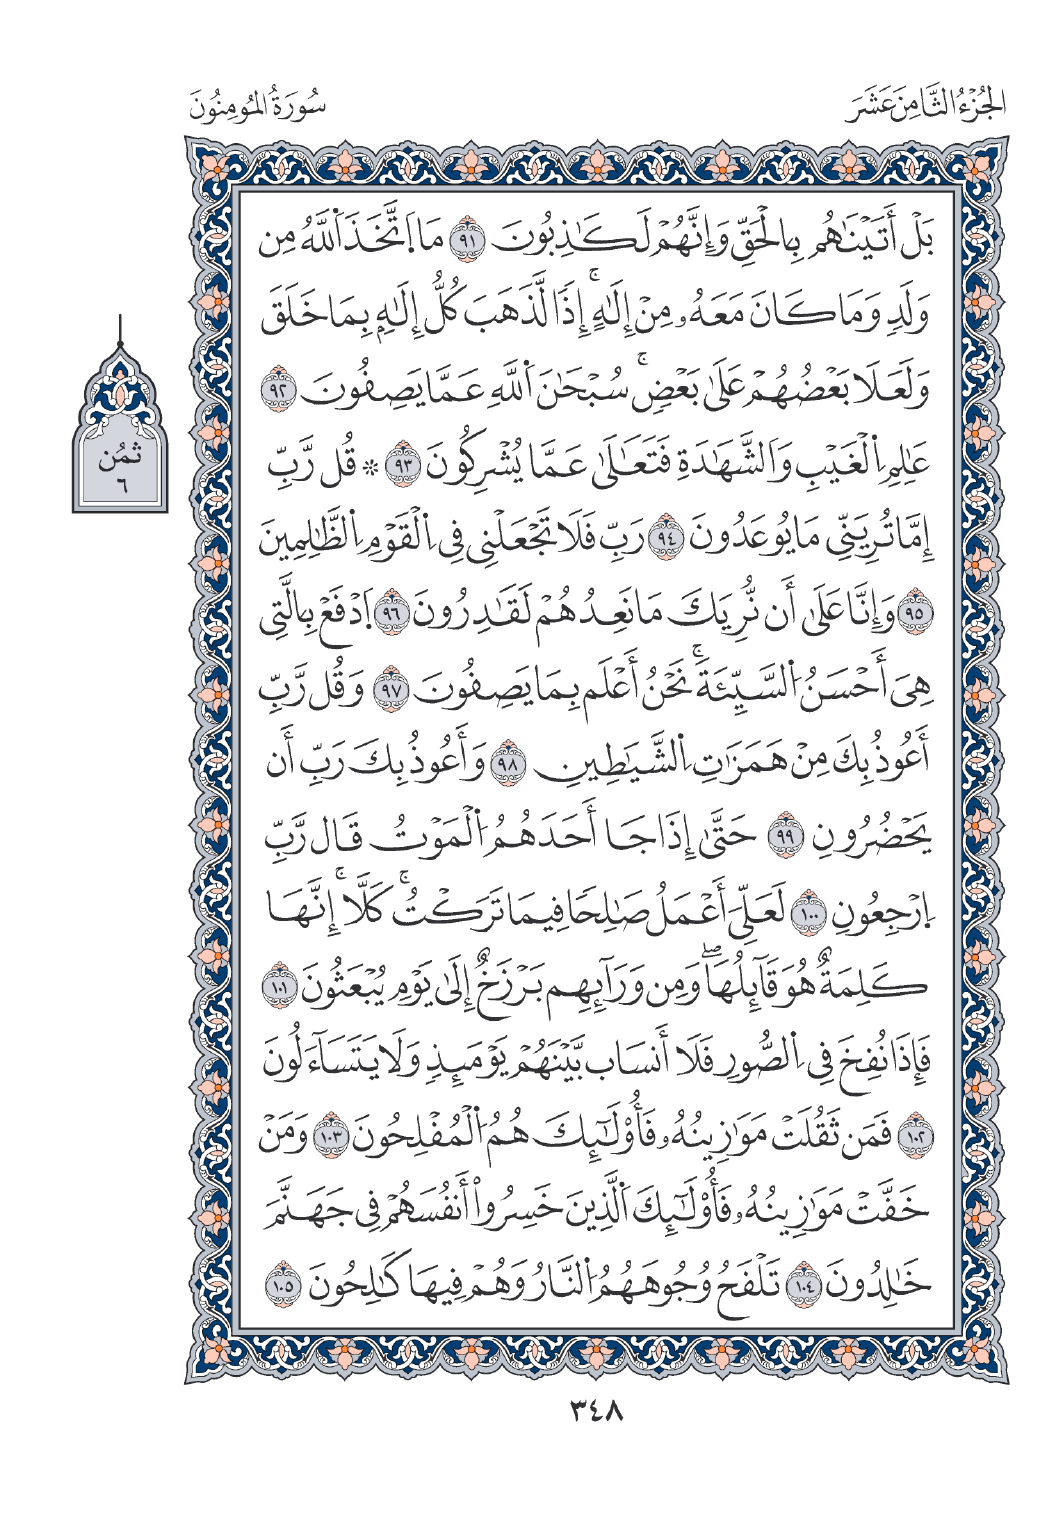 الجُزْءُ الثَّامِنَ عَشَرَ
سُورَةُ المُومِنُونَ
بَلْ أَتَيْنَٰهُم بِالْحَقِّ وَإِنَّهُمْ لَكَٰذِبُونَ ٩١ مَا اَتَّخَذَ اَللَّهُ مِن
وَلَدٍ وَمَا كَانَ مَعَهُۥ مِنْ إِلَٰهٍۚ إِذًا لَّذَهَبَ كُلُّ إِلَٰهِۭ بِمَا خَلَقَ
وَلَعَلَا بَعْضُهُمْ عَلَىٰ بَعْضٍۚ سُبْحَٰنَ اَللَّهِ عَمَّا يَصِفُونَ ٩٢
عَٰلِمِ اِلْغَيْبِ وَالشَّهَٰدَةِ فَتَعَٰلَىٰ عَمَّا يُشْرِكُونَ ٩٣ ۞ قُل رَّبِّ
إِمَّا تُرِيَنِّي مَا يُوعَدُونَ ٩٤ رَبِّ فَلَا تَجْعَلْنِي فِي اِلْقَوْمِ اِلظَّٰلِمِينَ
٩٥ وَإِنَّا عَلَىٰ أَن نُّرِيَكَ مَا نَعِدُهُمْ لَقَٰدِرُونَ ٩٦ اَدْفَعْ بِالَّتِي
هِيَ أَحْسَنُ اُلسَّيِّئَةَۚ نَحْنُ أَعْلَم بِمَا يَصِفُونَ ٩٧ وَقُل رَّبِّ
أَعُوذُ بِكَ مِنْ هَمَزَٰتِ اِلشَّيَٰطِينِ ٩٨ وَأَعُوذُ بِكَ رَبِّ أَن
يَحْضُرُونِ ٩٩ حَتَّىٰ إِذَا جَا أَحَدَهُمُ اُلْمَوْتُ قَال رَّبِّ
اِرْجِعُونِ ١٠٠ لَعَلِّيَ أَعْمَلُ صَٰلِحًا فِيمَا تَرَكْتُۚ كَلَّاۚ إِنَّهَا
كَلِمَةٌ هُوَ قَآئِلُهَاۖ وَمِن وَرَآئِهِم بَرْزَخٌ إِلَىٰ يَوْمِ يُبْعَثُونَ ١٠١
فَإِذَا نُفِخَ فِي اِلصُّورِ فَلَا أَنسَاب بَّيْنَهُمْ يَوْمَئِذٍ وَلَا يَتَسَآءَلُونَ
١٠٢ فَمَن ثَقُلَتْ مَوَٰزِينُهُۥ فَأُوْلَٰٓئِكَ هُمُ اُلْمُفْلِحُونَ ١٠٣ وَمَنْ
خَفَّتْ مَوَٰزِينُهُۥ فَأُوْلَٰٓئِكَ اَلَّذِينَ خَسِرُواْ أَنفُسَهُمْ فِي جَهَنَّمَ
خَٰلِدُونَ ١٠٤ تَلْفَحُ وُجُوهَهُمُ اُلنَّارُ وَهُمْ فِيهَا كَٰلِحُونَ ١٠٥
ثمُن
٦
٣٤٨